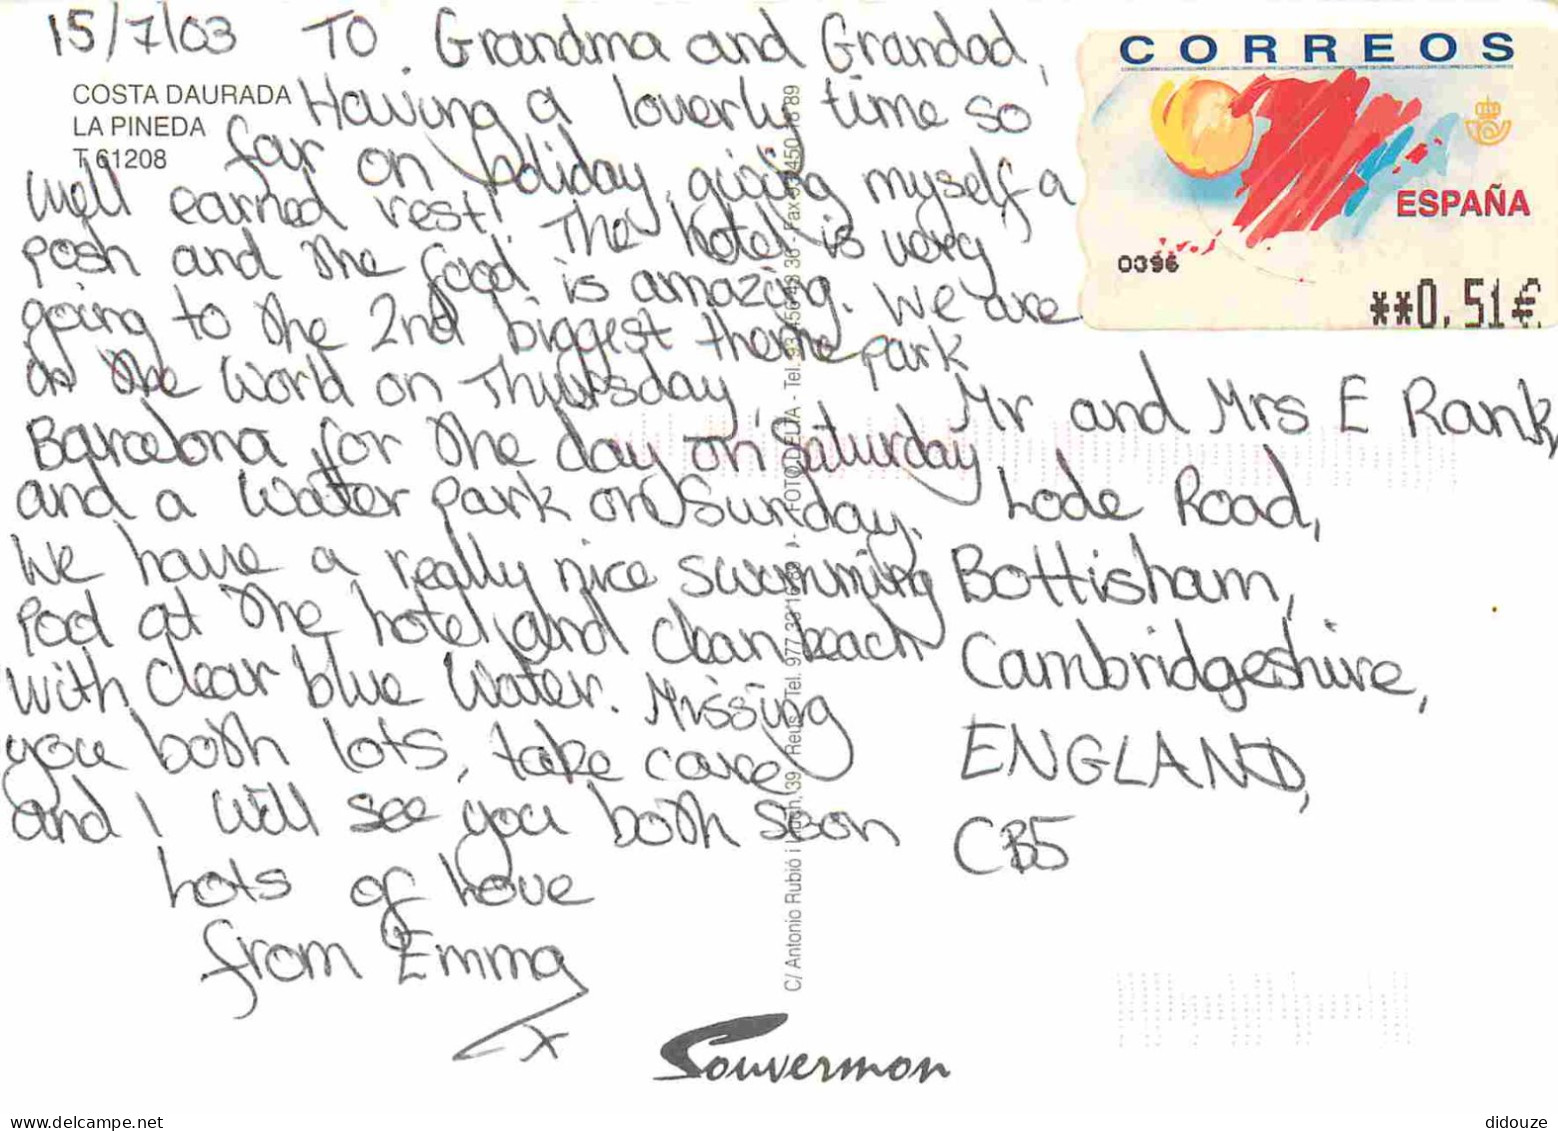 15/7/03 To Grandma and Grandad,
COSTA DAURADA
LA PINEDA
T 61208
Having a loverly time so
far on holiday, giving myself a
well earned rest! The hotel is very
posh and the food is amazing. We are
going to the 2nd biggest theme park
in the World on Thursday,
Barcelona for the day on Saturday
and a Water park on Sunday.
We have a really nice swimming
Pool at the hotel and clean beach
with clear blue water. Missing
you both lots, take care
and I will see you both soon
Lots of Love
from Emma
x
CORREOS
ESPAÑA
0396
**0,51€
Mr and Mrs E Rank,
Lode Road,
Bottisham,
Cambridgeshire,
ENGLAND,
CB5
C/ Antonio Rubió i 39 Reus Tel. 977 - FOTO DELTA - Tel. Fax
Souvermon
didouze